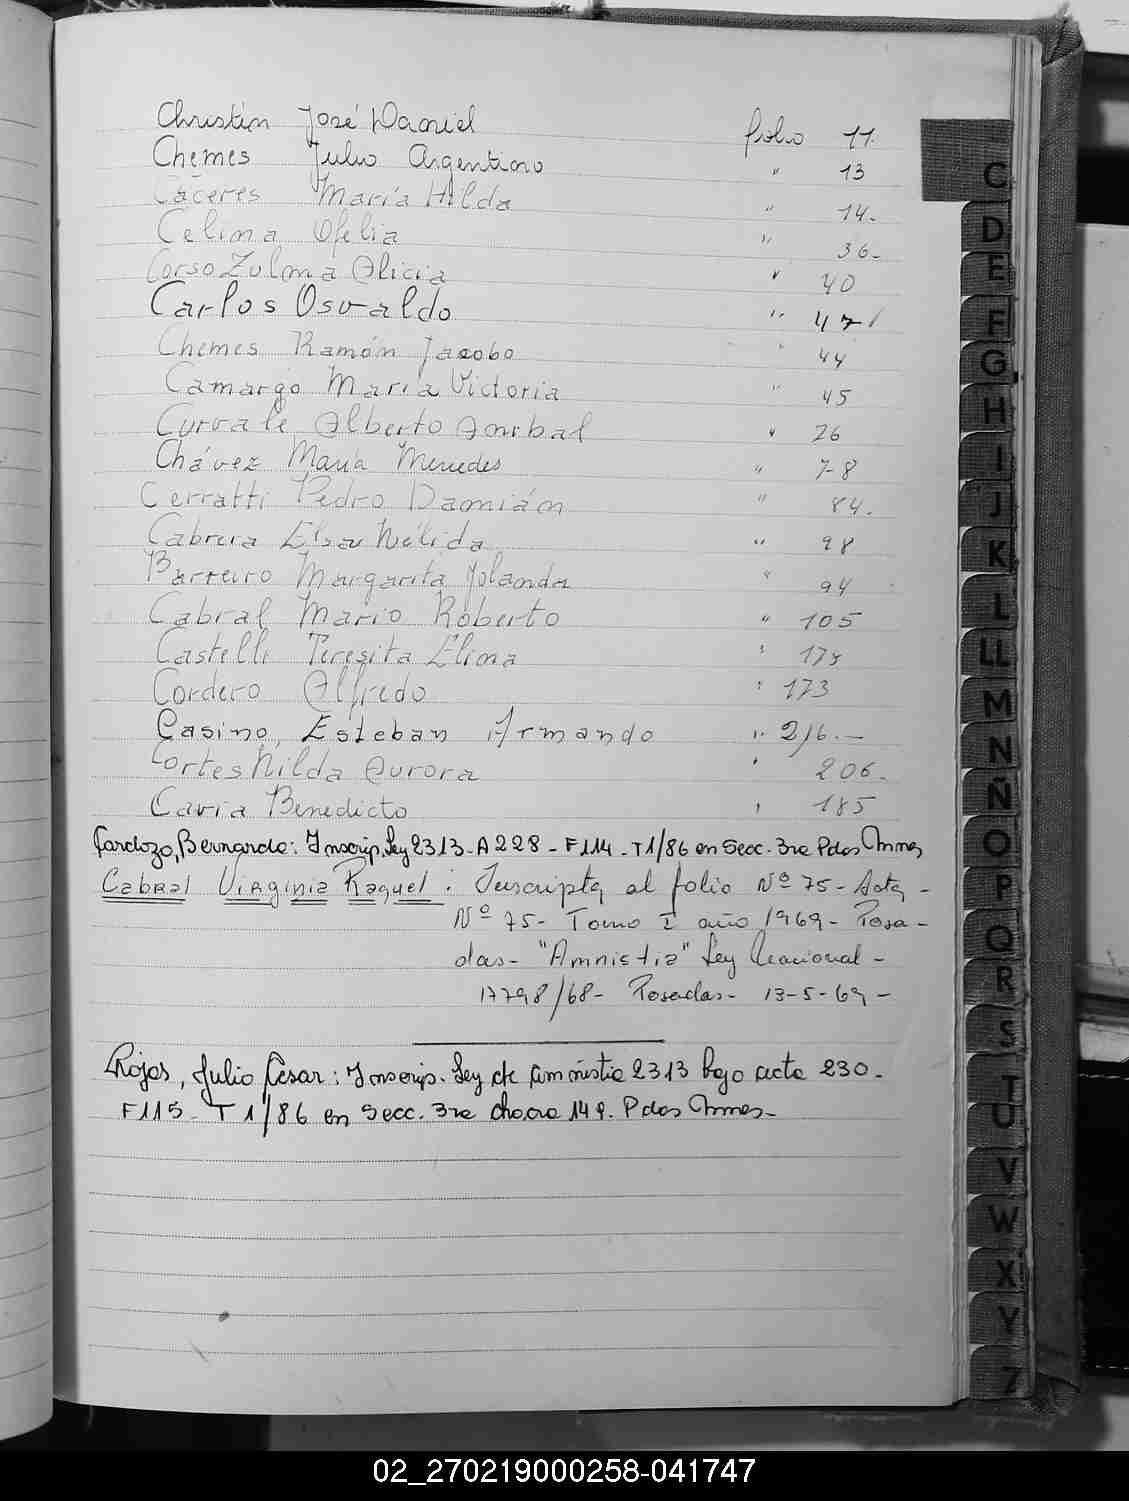 Christin José Daniel folio 11.
Chemes Julio Argentino " 13
Cáceres María Hilda " 14.
Celima Ofelia " 36.
Corso Zulma Alicia " 40
Carlos Osvaldo "
Chemes Ramón Jacobo " 44
Camargo María Victoria " 45
Curvale Alberto Anibal " 26
Chávez María Mercedes " 78
Cerratti Pedro Damián " 84.
Cabrera Elsa Nélida " 98
Barreiro Margarita Yolanda " 94
Cabral Mario Roberto " 105
Castelli Teresita Elima "
Cordero Alfredo " 173
Casino, Esteban Armando " 216.-
Cortes Nilda Aurora " 206.
Cavia Benedicto " 185
Cardozo, Bernardo: Inscrip. Ley 2313- A 228 - F 114 - T 1/86 en Secc. 3ra Pdas Mnes
Cabral Virginia Raquel : Inscripta al folio Nº 75 - Acta -
Nº 75 - Tomo I año 1969 - Posa-
das - "Amnistia" Ley Nacional -
17798/68 - Posadas - 13-5-69 -
Rojas, Julio Cesar: Inscrip. Ley de amnistia 2313 bajo acta 230.
F115 - T 1/86 en Secc. 3ra chacra 149. Pdas Mnes-
C
D
E
F
G
H
I
J
K
L
LL
M
N
Ñ
O
P
Q
R
S
T
U
V
W
X
Y
Z
02_270219000258-041747